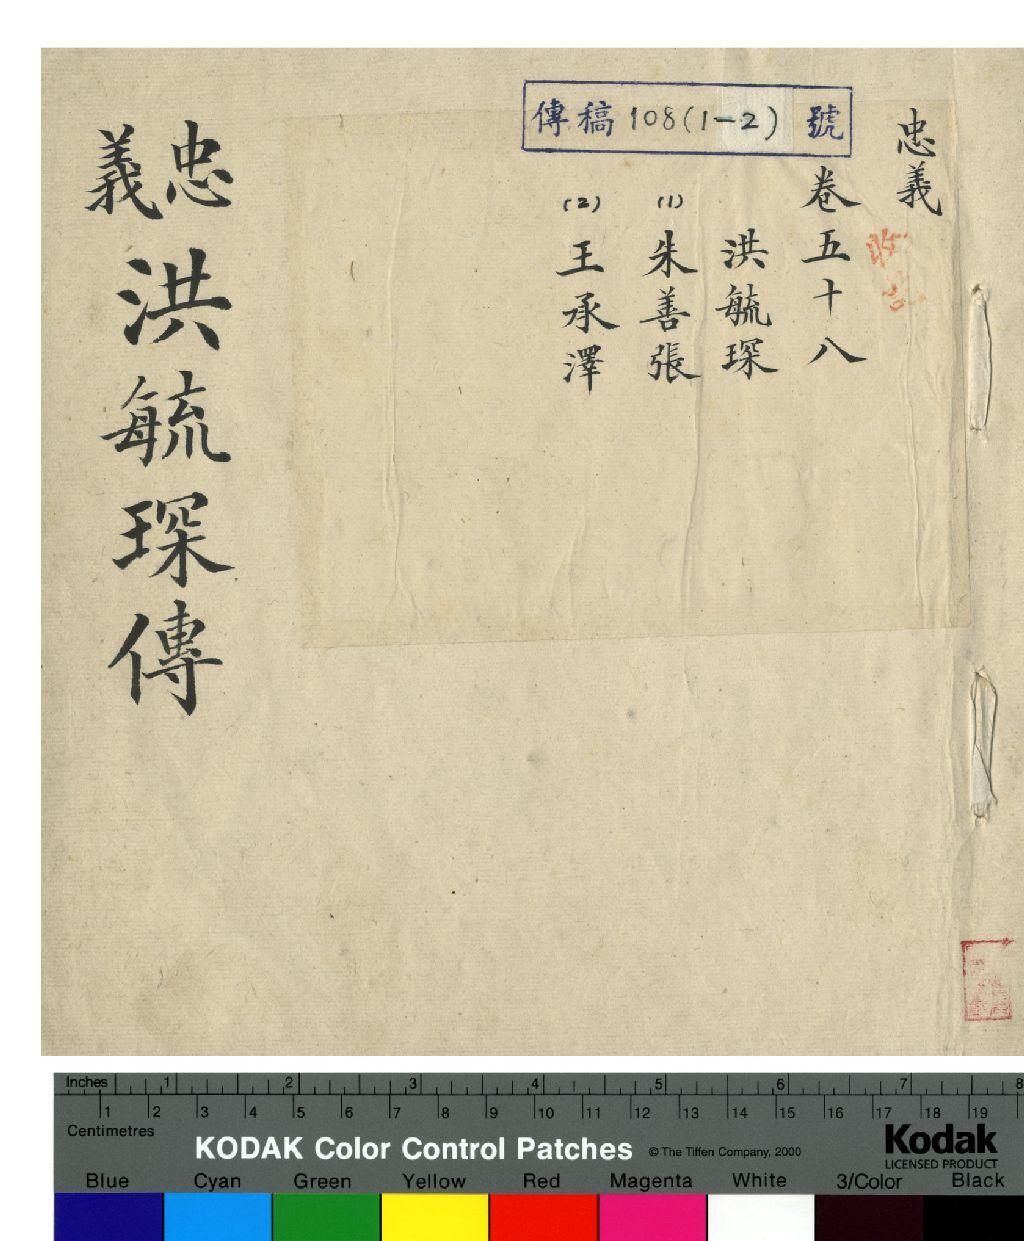 傳稿108(1-2)號
忠義
卷五十八
洪毓琛
(1) 朱善張
(2) 王承澤
忠義
洪毓琛傳
Inches 1 2 3 4 5 6 7 8
Centimetres 1 2 3 4 5 6 7 8 9 10 11 12 13 14 15 16 17 18 19
KODAK Color Control Patches © The Tiffen Company, 2000
Kodak
LICENSED PRODUCT
Blue Cyan Green Yellow Red Magenta White 3/Color Black